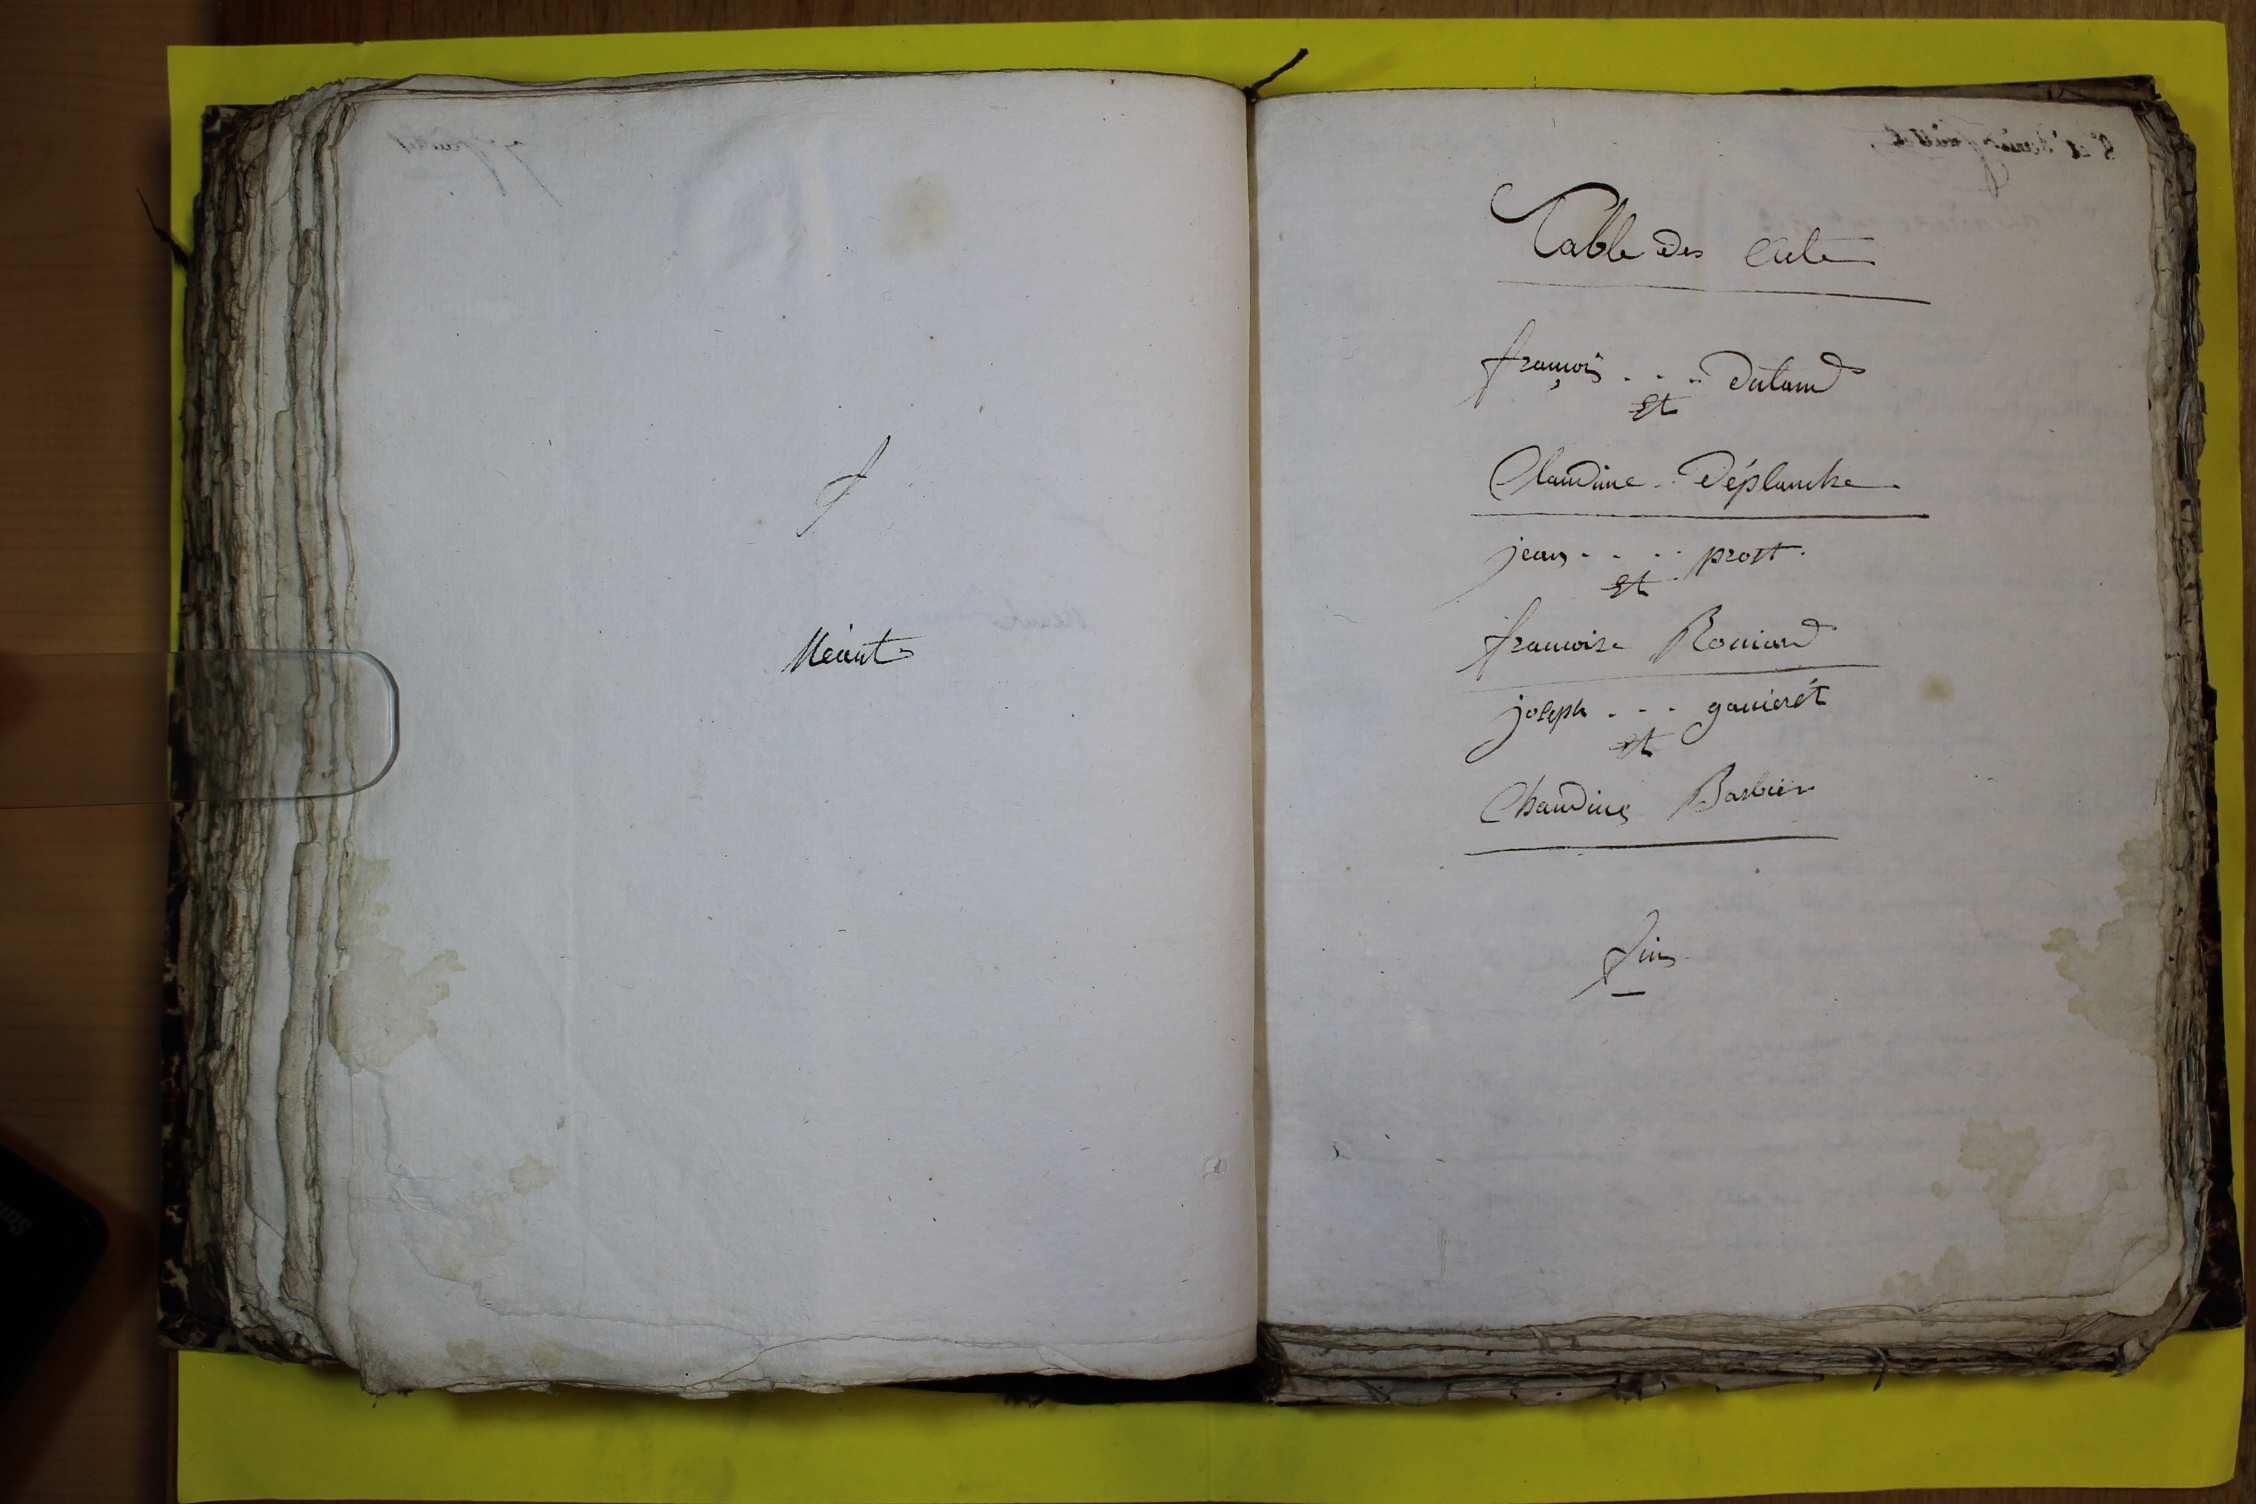 Néant
Table des Acte
françois . . . dutand
Et
Claudine . . Déplanche
jean . . . . prost.
Et
francoise Roniard
joseph . . . gauierét
et
Chaudine Barbier
fin